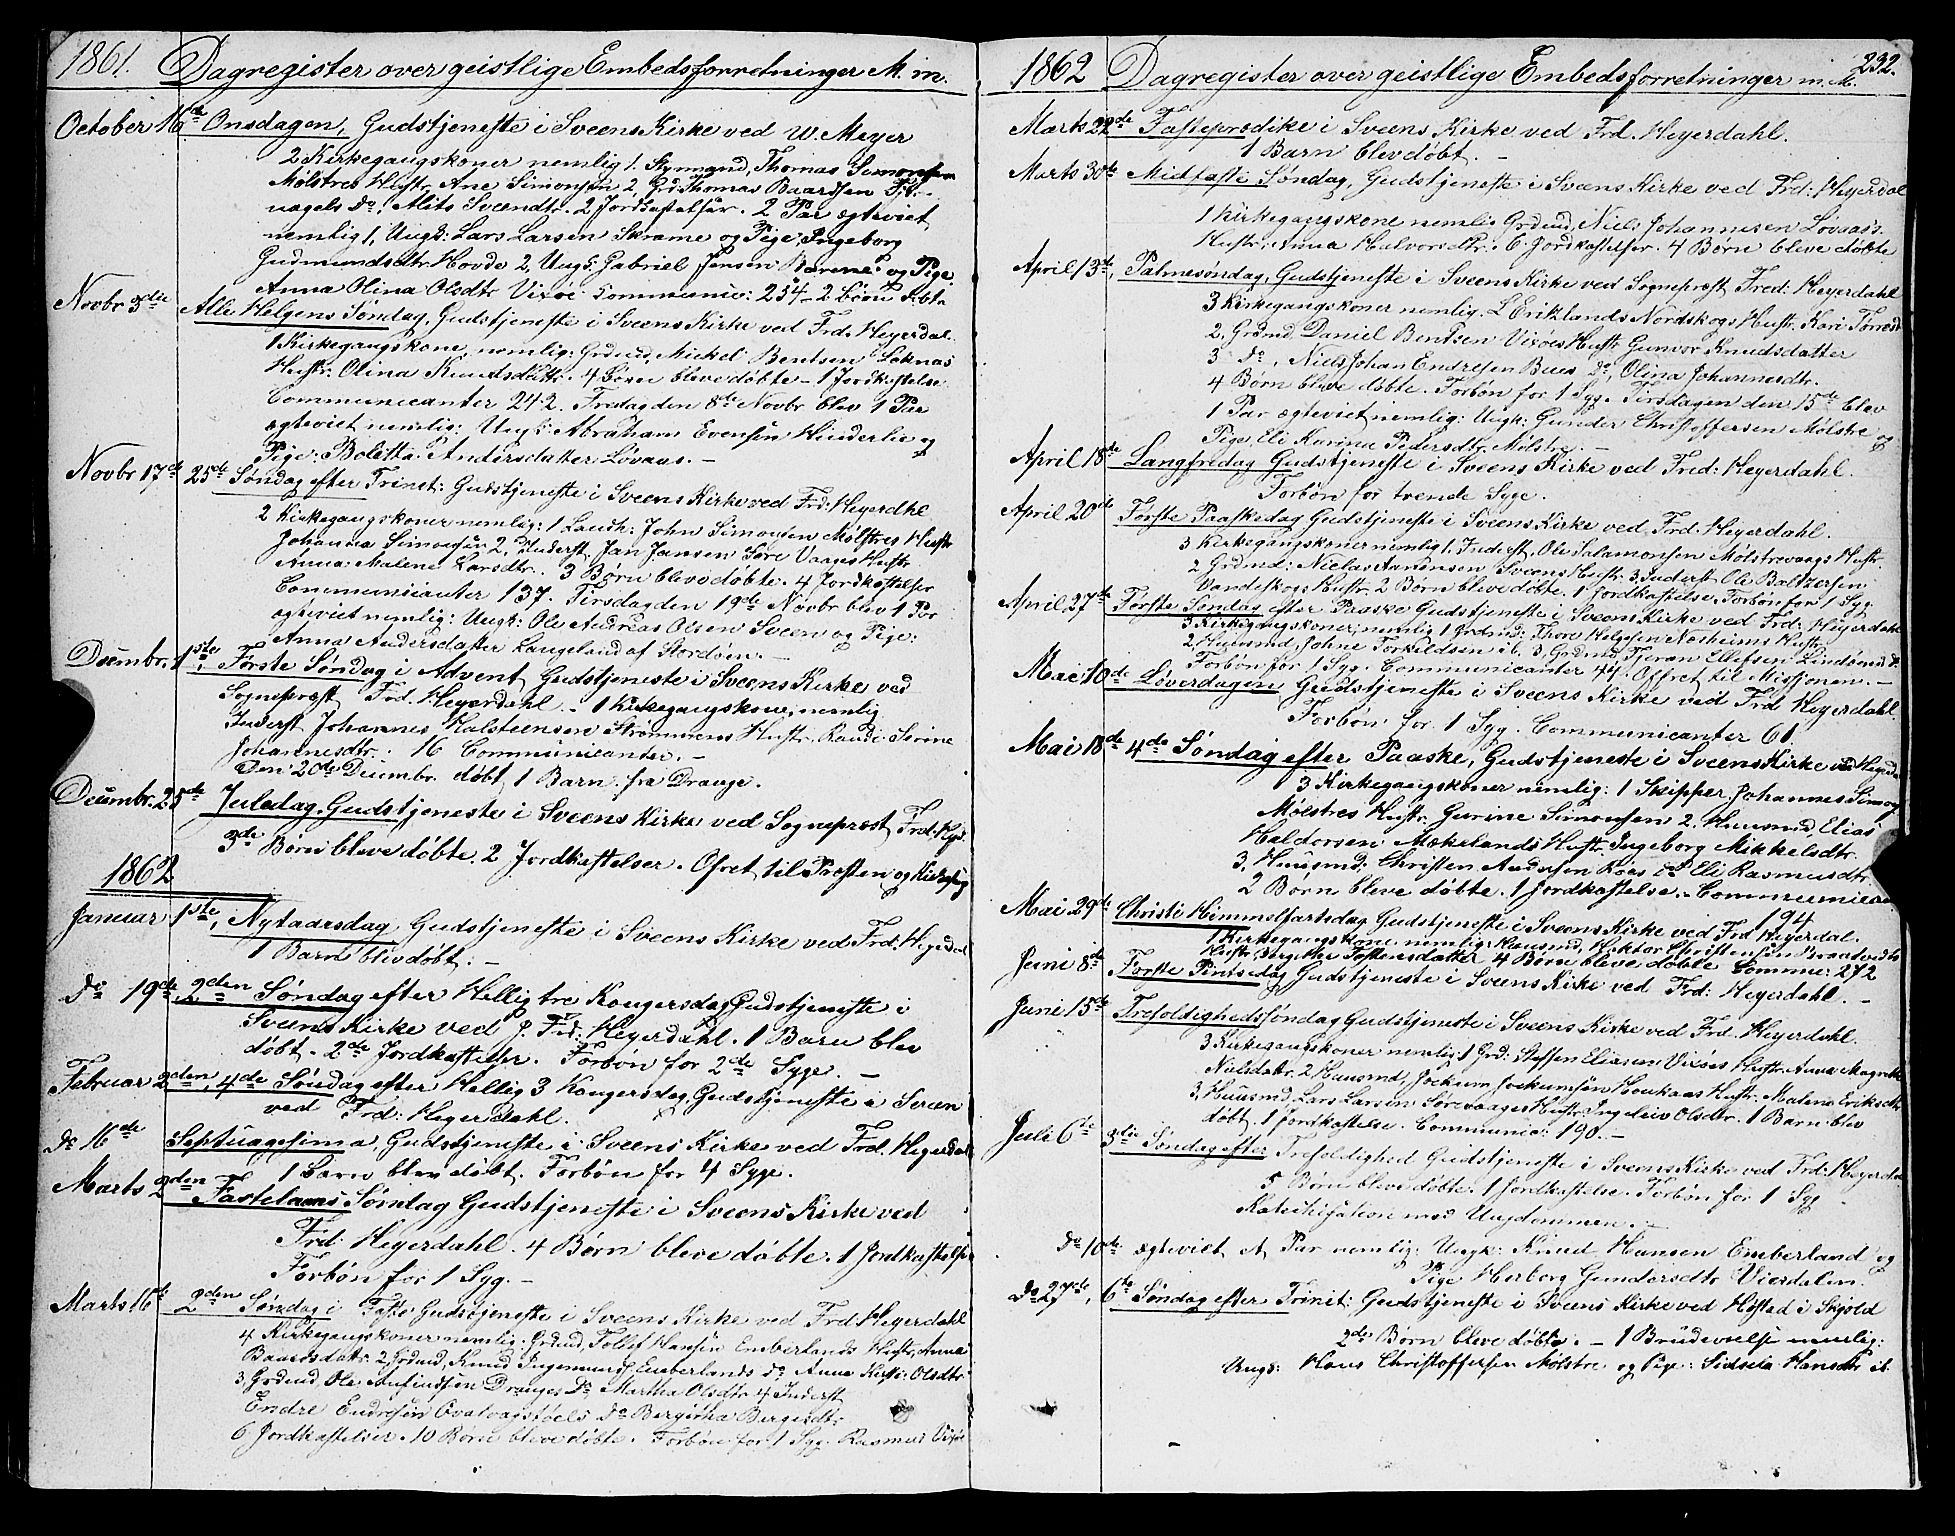 1861. Dagregister over geistlige Embedsforretninger M. m.
October 16de Onsdagen, Gudstjeneste i Sveens Kirke ved W. Meyer
2 Kirkegangskoner nemlig 1. Thomas Simonsen
Mølstres Hustr. Ane Simonsen 2, Thomas Baardsen
nagels Do, Alits Sveendtr. 2 Jordkastelser. 2 Par ægteviet
nemlig 1, Ungk: Lars Larsen Skrame og Pige, Ingeborg
Gudmundsdtr Hovde 2, Ungk. Gabriel Jensen og Pige
Anna Olina Olsdtr Vixøe. Communic: 254 - 2 Børn døbte
Novbr 3die Alle Helgens Søndag, Gudstjeneste i Sveens Kirke ved Frd. Heyerdal.
1 Kirkegangskone, nemlig: Grdmd, Mickel Bentsen Løknas
Hustr: Olina Knudsdattr. 4 Børn bleve døbte - 1 Jordkastelse.
Communicanter 242. Fredag den 8de Novbr blev 1 Par
ægteviet nemlig: Ungk: Abraham Evensen Hinderlie og
Pige: Boletta Andersdatter Løvaas. -
Novbr 17de 25de Søndag efter Trinit: Gudstjeneste i Sveens Kirke ved Frd: Heyerdhl
2 Kirkegangskoner nemlig: 1 John Simonsen Mølstres Hustr
Johanna Simonsen 2, Inderst, Jan Jansen Søre Vaages Hustr
Anna: Malene Larsdtr. 3 Børn bleve døbte. 4 Jordkastelser
Communicanter 137. Tirsdag den 19de Novbr blev 1 Par
ægteviet nemlig: Ungk: Ole Andreas Olsen Sveen og Pige:
Anna Andersdatter Langeland af Stordøen. -
Decembr. 1ste, Første Søndag i Advent, Gudstjeneste i Sveens Kirke ved
Sognepræst Frd. Heyerdahl. - 1 Kirkegangskone, nemlig
Inderst Johannes Halsteensen Strømmens Hustr. Randi Serine
Johannesdtr. 16 Communicanter. -
Den 20de Decembr. døbt 1 Barn fra Drange.
Decembr. 25de Juledag, Gudstjeneste i Sveens Kirke ved Sognepræst Frd: Hyd.
3de Børn bleve døbte. 2 Jordkastelser. Ofret til Præsten og
1862
Januar 1ste, Nytaarsdag Gudstjeneste i Sveens Kirke ved Frd: Heyerdal
1 Barn blev døbt. -
Do 19de, 2den Søndag efter Hellig tre Kongersdag Gudstjeneste i
Sveens Kirke ved J. Frd: Heyerdahl. 1 Barn blev
døbt. 2de Jordkastelser. Forbøn for 2de Syge. -
Februar 2den, 4de Søndag efter Hellig 3 Kongersdag, Gudstjeneste i Sveen
ved Frd: Heyerdahl.
Do 16de Septuagesima, Gudstjeneste i Sveens Kirke ved Frd. Heyerdal
1 Barn blev døbt. Forbøn for 4 Syge.
Marts 2den Fastelavns Søndag Gudstjeneste i Sveens Kirke ved
Frd: Heyerdahl. 4 Børn bleve døbte. 1 Jordkastelse
Forbøn for 1 Syg. -
Marts 16de 2den Søndag i Faste Gudstjeneste i Sveens Kirke ved Frd Heyerdahl
4 Kirkegangskoner nemlig. Grdmd, Tollef Hansen Emberlands Hustr, Anna
Baardsdatr. 2, Grdmd, Knud Emberlands Do Anna Olsdtr.
3, Grdmd, Ole Dranges Do Martha Olsdtr. 4 Inderst
Endre Endresen Do Bergitha
6 Jordkastelser. 10 Børn bleve døbte. Forbøn for 1 Syg. Rasmus Vixøe
1862 Dagregister over geistlige Embedsforretninger m. M. 232.
Marts 22de Fasteprædike i Sveens Kirke ved Frd. Heyerdahl.
1 Barn blev døbt. -
Marts 30te Midfaste Søndag, Gudstjeneste i Sveens Kirke ved Frd: Heyerdal
1 Kirkegangskone nemlig Grdmd, Niels Johannesen Løvaas's
Hustr. Anna Halvorsdtr. 6. Jordkastelser. 4 Børn bleve døbte
April 13de, Palmesøndag, Gudstjeneste i Sveens Kirke ved Sognepræst Fred: Heyerdahl
3 Kirkegangskoner nemlig. Nordskogs Hustr. Kari
2, Grdmd, Daniel Bentsen Vixøes Hustr Gunvor Knudsdatter
3 do, Niels Johan Endresen Bues Do, Olina Johannesdtr.
4 Børn bleve døbte. Forbøn for 1 Syg. Tirsdagen den 15de blev
1 Par ægteviet nemlig: Ungk: Gunder Christoffersen Mølstre og
Pige Eli Karine Pedersdtr. Mølstre. -
April 18de Langfredag Gudstjeneste i Sveens Kirke ved Fred: Heyerdahl.
Forbøn for trende Syge.
April 20de Første Paaskedag Gudstjeneste i Sveens Kirke ved Frd. Heyerdahl.
3 Kirkegangskoner nemlig 1. Inderst, Ole Salamonsen Mølstrevaags Hustr.
2 Grdmd. Niclas Sveens Hustr. 3, Inderst Ole Baltzersen
Vandeskogs Hustr. 2 Børn bleve døbte. 1 Jordkastelse. Forbøn for 1 Syg
April 27de Første Søndag efter Paaske Gudstjeneste i Sveens Kirke ved Frd: Heyerdahl
3 Kirkegangskoner; nemlig 1 Grdmd: Thore Helgesen Næsheims Hustr
2, Huusmd, Johne Torkildsen ib. 3, Grdmd, Ellefsen Do
Forbøn for 1 Syg. Communicanter 44. Offret til Missjonen. -
Mai 10de Løverdagen Gudstjeneste i Sveens Kirke ved Frd Heyerdahl.
Forbøn for 1 Syg. Communicanter 61
Mai 18de 4de Søndag efter Paaske, Gudstjeneste i Sveens Kirke ved
3 Kirkegangskoner nemlig: 1 Skipper Johannes
Mølstres Hustr. Gurine Simonsen 2. Huusmd, Elias
Haldorsen Mækelands Hustr. Ingeborg Mikkelsdtr.
3, Huusmd. Christen Andersen Do Eli Rasmusdtr.
2 Børn bleve døbte. 1 Jordkastelse. Communican
194
Mai 29de Christi Himmelfartsdag Gudstjeneste i Sveens Kirke ved Frd Heyerdal.
1 Kirkegangskone nemlig: Huusmd, Christensen
Hustr, 4 Børn bleve døbte Commu: 272
Juni 8de Første Pintsedag Gudstjeneste i Sveens Kirke ved Frd: Heyerdahl. -
Juni 15de Trefoldigheds søndag Gudstjeneste i Sveens Kirke ved Frd. Heyerdahl.
3 Kirkegangskoner nemlig 1 Grd: Steffen Eliasen Vixøes Hustr. Anna
Nielsdatr. 2 Huusmd, Jockum Jockumsen Houkaas Hustr. Malena Eriksdtr
3, Huusmd, Lars Larsen Sørevaages Hustr Olsdtr. 1 Barn blev
døbt. 1 Jordkastelse. Communic: 190. -
Juli 6te 3die Søndag efter Trefoldighed Gudstjeneste i Sveens Kirke ved Frd: Heyerdal
5 Børn bleve døbte. 1 Jordkastelse. Forbøn for 1 Syg
Katechisation med Ungdommen. -
Do 10de ægteviet et Par nemlig: Ungk: Knud Hansen Emberland og
Pige Herborg Gundersdtr Vierdalen.
Do 27de, 6te Søndag efter Trinit: Gudstjeneste i Sveens Kirke ved Hysted i Skjold
2de Børn bleve døbte. - 1 Brudevielse nemlig:
Ungk: Hans Christoffersen Mølstre og Pige: Sidseia Hansdtr ib.